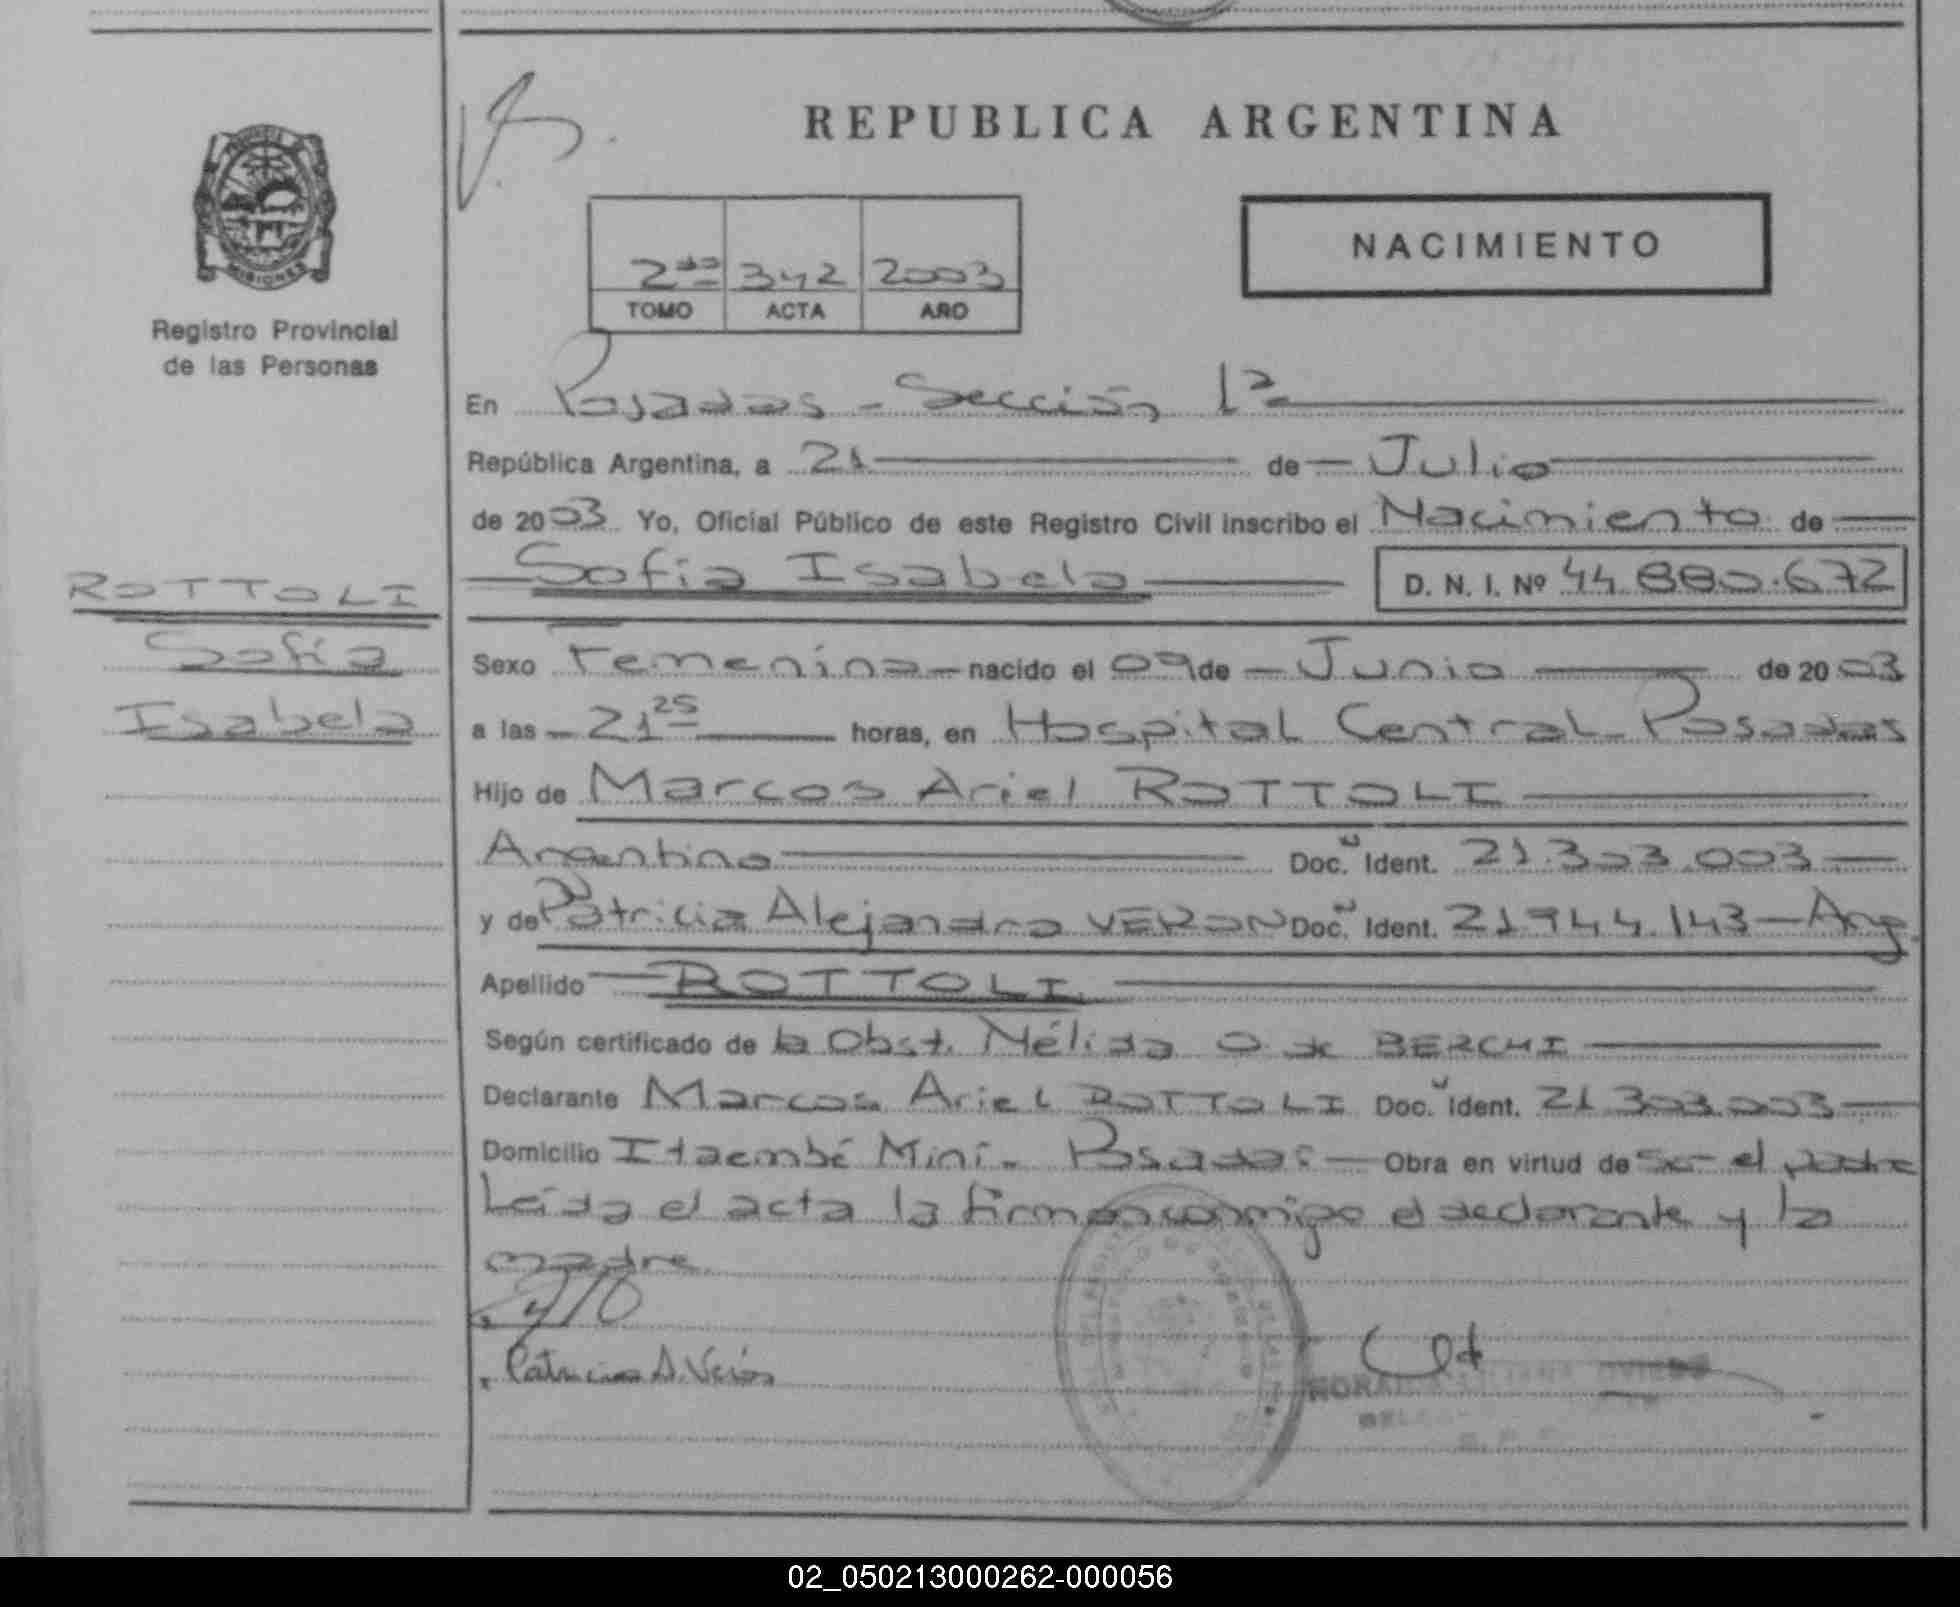 REPUBLICA ARGENTINA
NACIMIENTO
2do 342 2003
TOMO ACTA AÑO
MISIONES
Registro Provincial
de las Personas
ROTTOLI
Sofía
Isabela
En Posadas - Sección 1ª
República Argentina, a 21 de Julio
de 2003 Yo, Oficial Público de este Registro Civil inscribo el Nacimiento de
Sofía Isabela D. N. I. Nº 44.880.672
Sexo Femenino nacido el 09 de Junio de 2003
a las 21 25 horas, en Hospital Central Posadas
Hijo de Marcos Ariel ROTTOLI
Argentino Doc. Ident. 21.303.003
y de Patricia Alejandra VERON Doc. Ident. 21944.143 - Arg.
Apellido ROTTOLI
Según certificado de la Obst. Nélida O. de BERCHI
Declarante Marcos Ariel ROTTOLI Doc. Ident. 21.303.003
Domicilio Itaembé Miní - Posadas Obra en virtud de ser el padre
Leída el acta la firman conmigo el declarante y la
madre
Patricia A. Verón
OVIEDO
02_050213000262-000056